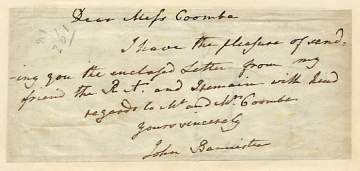 Dear Miss Coombe
I have the pleasure of send-
-ing you the enclosed Letter from my
friend the R. A. and Iremain with kind
regards to Mr. and Mrs. Coombe
yours sincerely
John Bannister